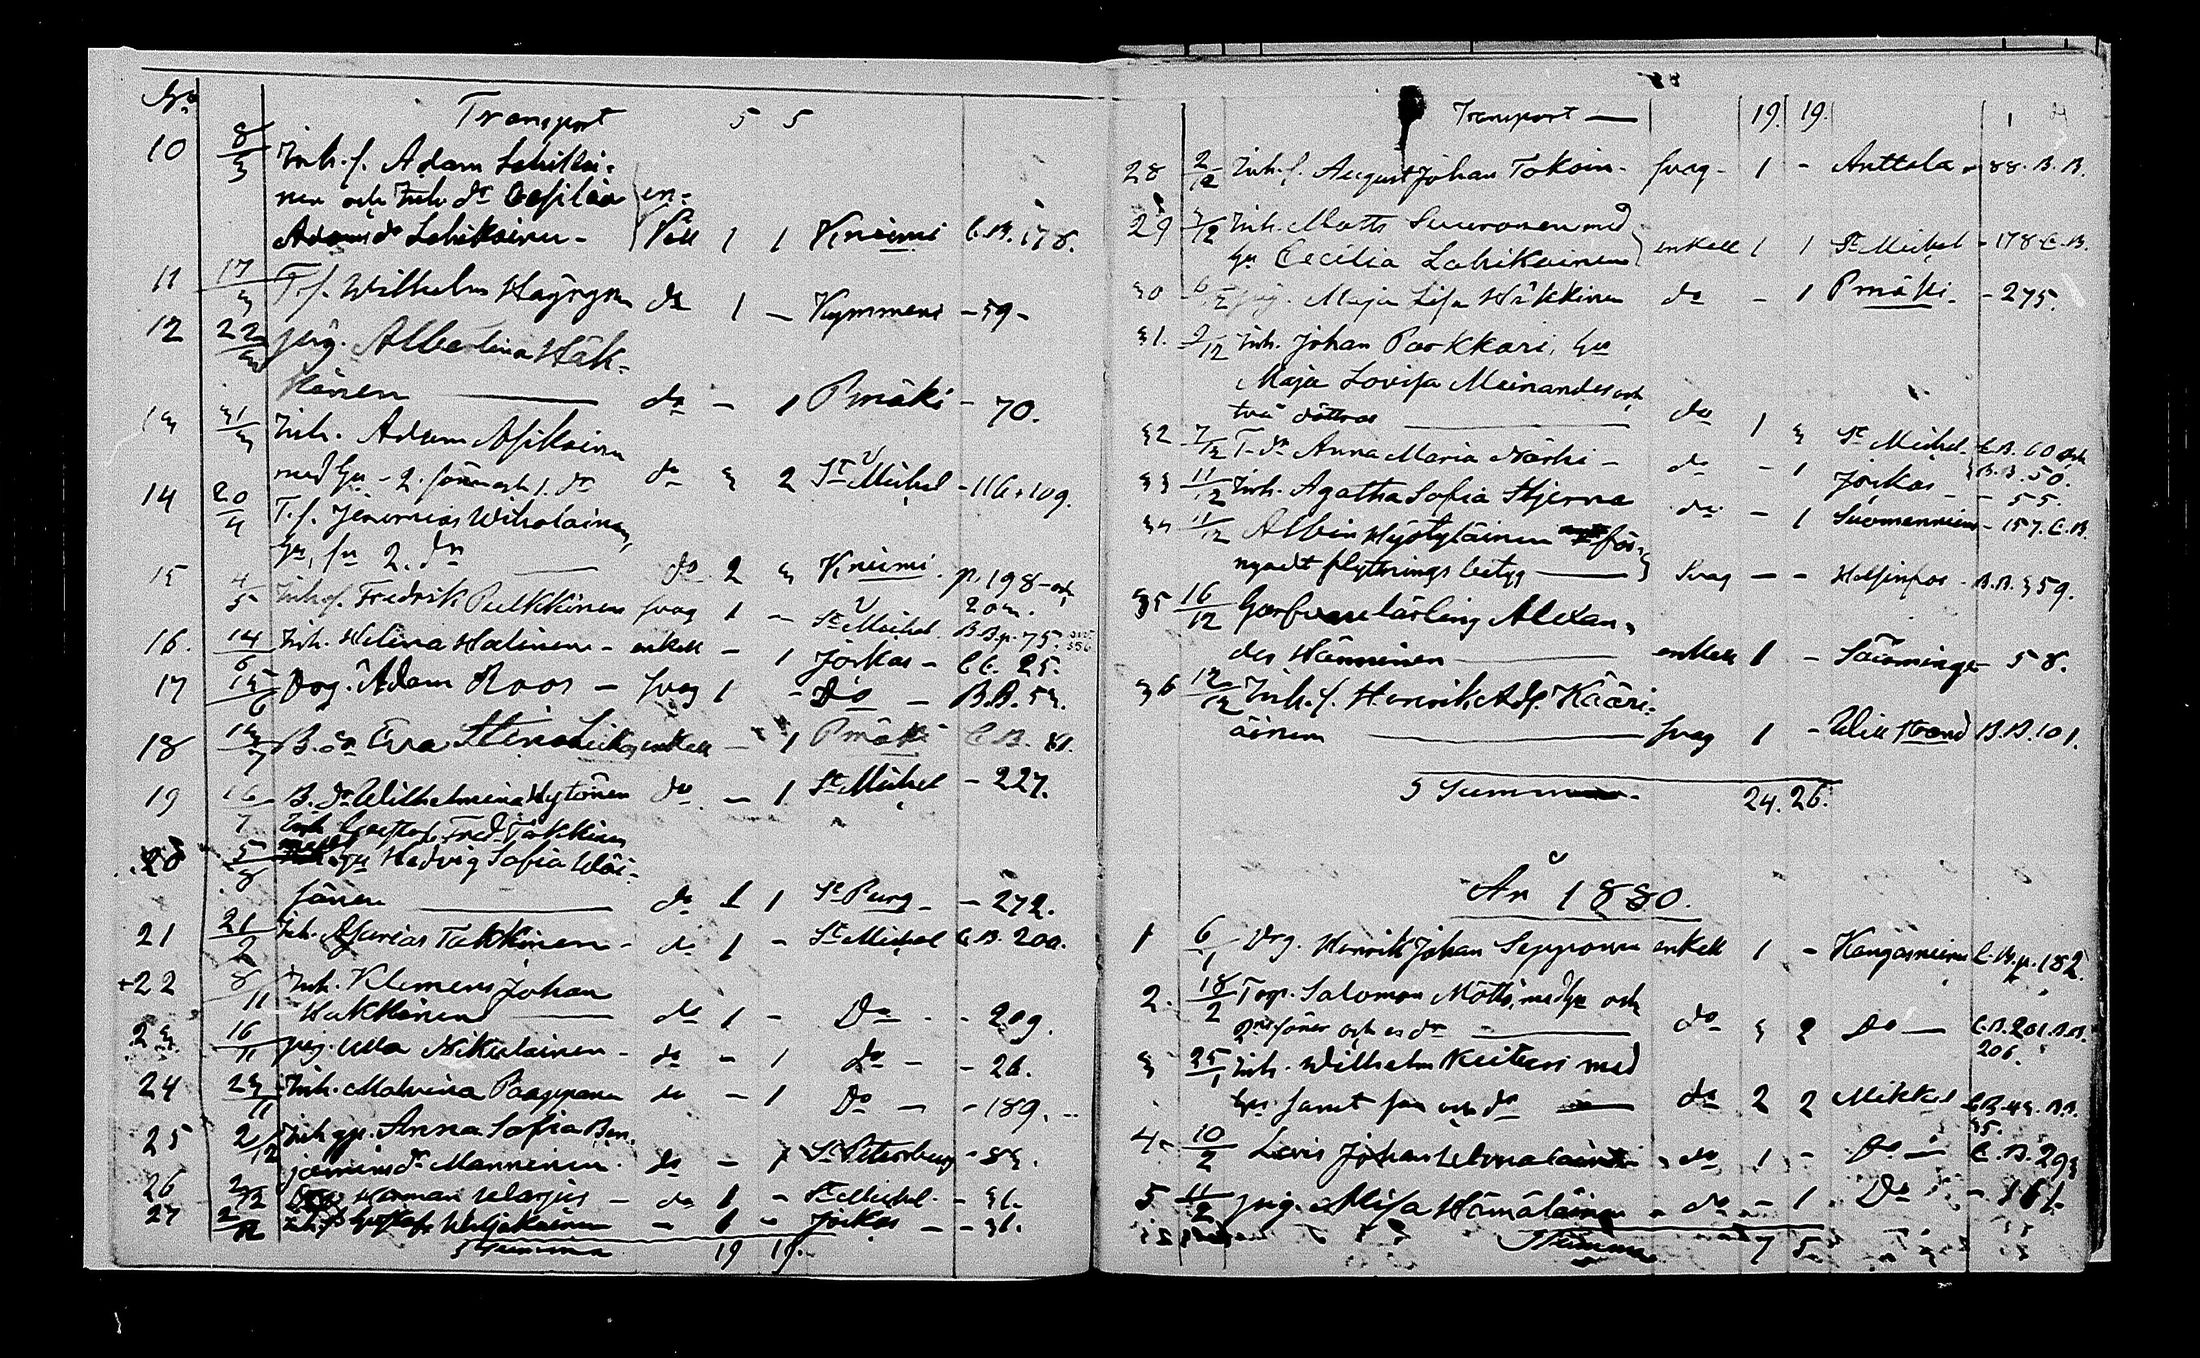 No
Transport 5 5
10 8/3 Inh. f. Adam Lahikai-
nen och Inh. dr Cesilia en-
Adamsdr Lahikainen - kell 1 1 Kniemi C.B. 178.
11 17/3 T.f. Wilhelm Häyrynen do 1 - Kymmene - 59 -
12 22/3 pig. Albertina Häk-
känen do - 1 Pmäki - 70.
13 31/3 Inh. Adam Asikainen
med hu - 2. söner och 1. dr do 3 2 St Michel - 116 + 109.
14 20/4 T.f. Jeremias Wiholainen,
hu, sn 2. dr do 2 3 Kniemi. p. 198 - och
15 4/5 Inh.f. Fredrik Pulkkinen svag 1 - St Michel. B.B.p. 75.
16. 14/6 Inh. Helena Halinen - enkell - 1 Jorkas - C.C. 25.
17 15/6 Drg. Adam Roos - svag 1 - Do - B.B. 53.
18 B. dr Eva Stina enkell - 1 Pmäki C.B. 81.
19 16/7 B. dr Wilhelmina Hytönen do - 1 St Michel - 227.
Inh Gustaf Fred. Takkinen
20 5/8 med hu Hedvig Sofia Wäi-
sänen do 1 1 St Purg - - 272.
21 21/ Inh. Takkinen - do 1 - St Michel C.B. 200.
+22 8/11 Inh. Klemens Johan
Hakkinen do 1 - Do - - 209.
23 16/11 pig. Ulla Nikulainen - do - 1 Do - - 26.
24 23/11 Inh. Malvina Pasppanen do - 1 Do - - 189.
25 2/12 Inh gp. Anna Sofia Ben-
jaminsdr Manninen do - 1 St Petersburg - 83.
26 2/12 Herman Warjus - do 1 - St Michel. - 31.
27 2/12 Inh. f. Gustaf Weljakainen - 1 - Jorkas - - 31.
Summa 19 19.
Transport 19. 19.
28 2/12 Inh. f. August Johan Tokoin - svag - 1 - Anttola - 88. B.B.
29 3/12 Inh. Matts Suuronen med
hu Cecilia Lahikainen enkell 1 1 St Michel - 178 C.B.
30 6/12 pig. Maja Lisa Häkkinen do - 1 Pmäki - - 275.
31. 9/12 Inh. Johan Parkkari, hu
Maja Lovisa Meinander och
två döttrar do 1 3 St Michel C.B. 60 och
B.B. 50.
32 7/12 T-dr Anna Maria Närhi - do - 1 Jorkas - - 55.
33 11/12 Inh. Agatha Sofia Stjerna do - 1 Suomenniemi - 157. C.B.
34 11/12 Albin Hyötyläinen för-
nyadt flyttnings betyg svag - - Helsinfors - B.B. 359.
35 16/12 Garfvarelärling Alexan-
der Hänninen enkell 1 - Sääminge - 58.
36 19/12 Inh. f. Henrik Adf. Kääri-
äinen svag 1 - Willstrand B.B. 101.
Summa 24. 26.
År 1880.
1 6/1 Drg. Henrik Johan Sepponen enkell 1 - Kangasniemi C.B.p. 182.
2. 18/2 Torp. Salomon Mötti, med hu och
2ne söner och en dr do 3 2 Do C.B. 201. B.B.
206.
3 25/1 Inh. Wilhelm Keituri med
hu samt son och dr do 2 2 Mikkeli C.B. 43. B.B.
35.
4 10/2 Lars Johan do 1 - Do - C.B. 293
5 11/2 pig. Misa Hämäläinen - do - 1 Do - 161.
Summa 7 5